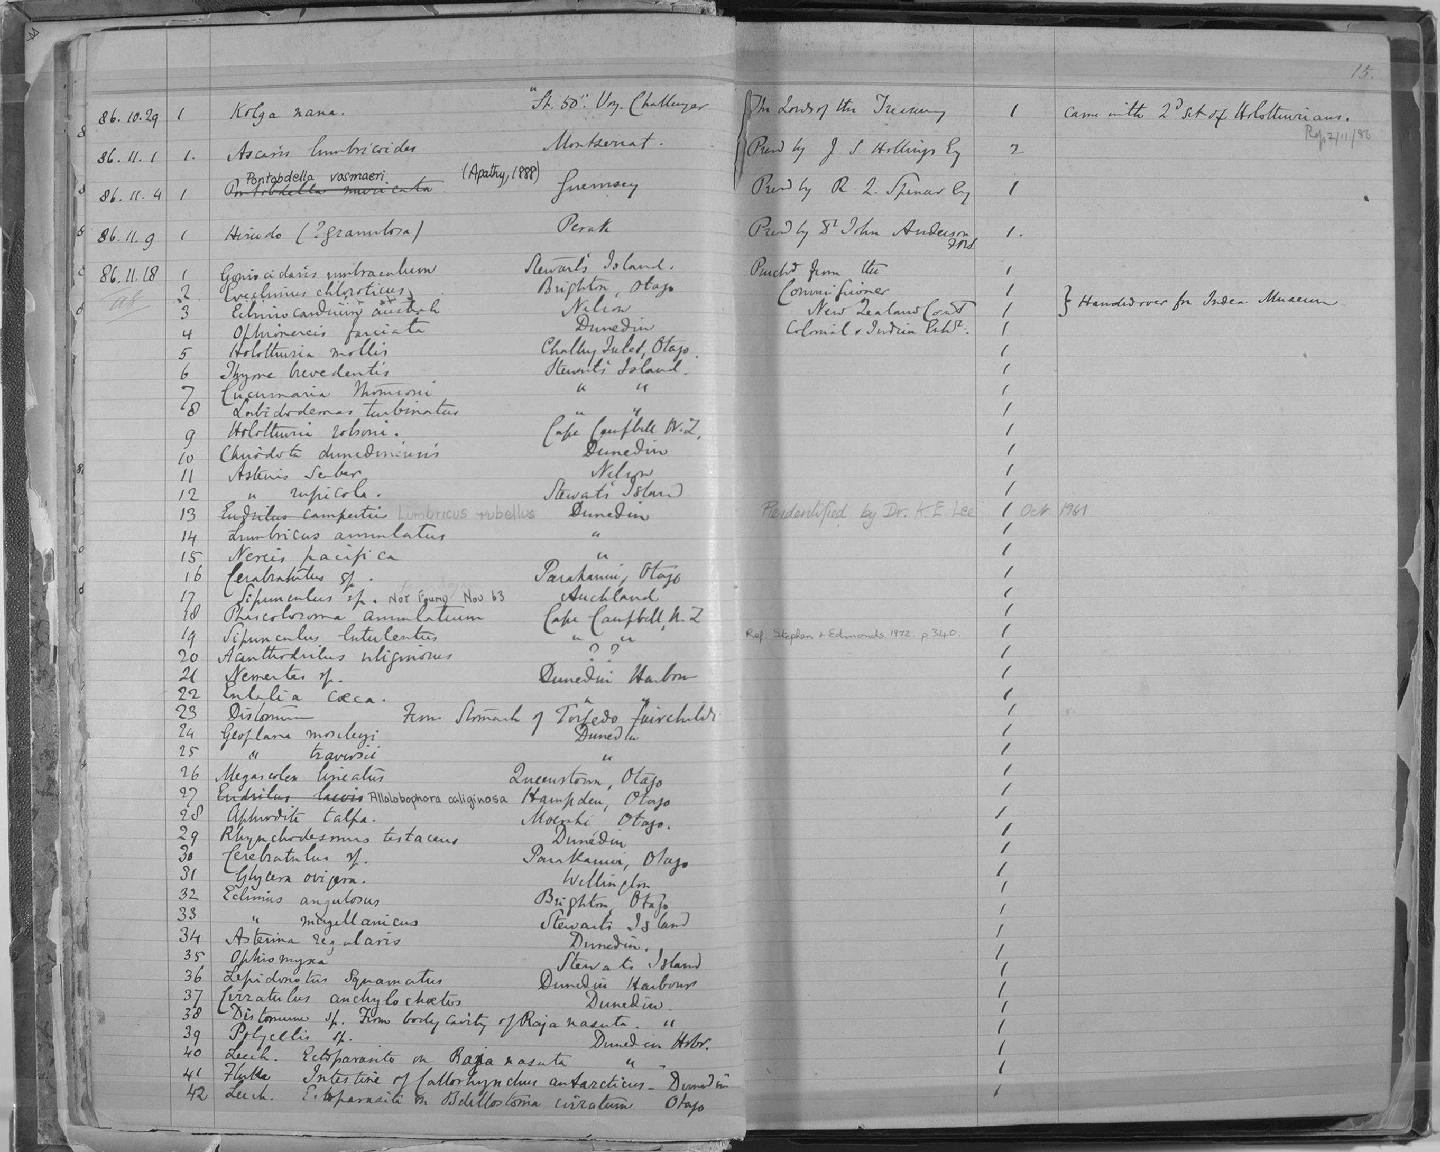 15.
86.10.29 1 Kolga nana. "St. 50". Voy. Challenger The Lords of the Treasury 1 Came with 2d set of Holothurians.
Rep 2/11/86
86.11.1 1. Ascaris lumbricoides Montserrat. Pres'd by J S Hollings Esq 2
Pontobdella vosmaeri (Apathy, 1888)
86.11.4 1 Pontobdella muricata Guernsey Pres'd by R. L. Spencer Esq 1
86.11.9 1 Hirudo (? granulosa) Perak Pres'd by Dr John Anderson 1.
86.11.18 1 Goniocidaris umbraculum Stewart's Island. Purch'd from the 1
2 Evechinus chloroticus Brighton, Otago Commissioner 1
3 Echinocardium australe Nelson New Zealand Court 1 } Handed over for Index Museum
4 Ophionereis fasciata Dunedin Colonial & Indian Exhn. 1
5 Holothuria mollis Chalky Inlet, Otago. 1
6 Thyone brevidentis Stewart's Island. 1
7 Cucumaria Thomsoni " " 1
8 Labidodemas turbinatus " " 1
9 Holothuria robsoni. Cape Campbell N.Z. 1
10 Chirodota dunedinensis Dunedin 1
11 Asterias scaber Nelson 1
12 " rupicola. Stewart's Island 1
13 Eudrilus campestris Lumbricus rubellus Dunedin Reidentified by Dr. K E Lee 1 Oct 1961
14 Lumbricus annulatus " 1
15 Nereis pacifica " 1
16 Cerabratulus sp. Parakanui, Otago 1
17 Sipunculus sp. Not Found Nov 63 Auckland 1
18 Phascolosoma annulatum Cape Campbell, N.Z 1
19 Sipunculus lutulentus " " Ref. Stephen & Edmonds. 1972. p 340. 1
20 Acanthodrilus uliginosus ? ? 1
21 Nemertes sp. Dunedin Harbour 1
22 Eulalia cæca. " " 1
23 Distomum From Stomach of Torpedo fairchildi 1
24 Geoplana moseleyi Dunedin 1
25 " traversii " 1
26 Megascolex lineatus Queenstown, Otago 1
27 Eudrilus levis Allolobophora caliginosa Hampden, Otago 1
28 Aphrodite talpa. Moeraki Otago. 1
29 Rhynchodesmus testaceus Dunedin 1
30 Cerebratulus sp. Parakanui, Otago 1
31 Glycera ovigera. Wellington 1
32 Echinus angulosus Brighton, Otago 1
33 " magellanicus Stewarts Island 1
34 Asterina regularis Dunedin. 1
35 Ophiomyxa Stewarts Island 1
36 Lepidonotus squamatus Dunedin Harbours 1
37 Cirratulus anchylochætus Dunedin 1
38 Distomum sp. From body cavity of Raja nasuta. " 1
39 Polycelis sp. Dunedin Hrbr. 1
40 Leech. Ectoparasite on Raja nasuta " 1
41 Fluke Intestine of Callorhynchus antarcticus - Dunedin 1
42 Leech. Ectoparasite on Bdellostoma cirratum Otago 1